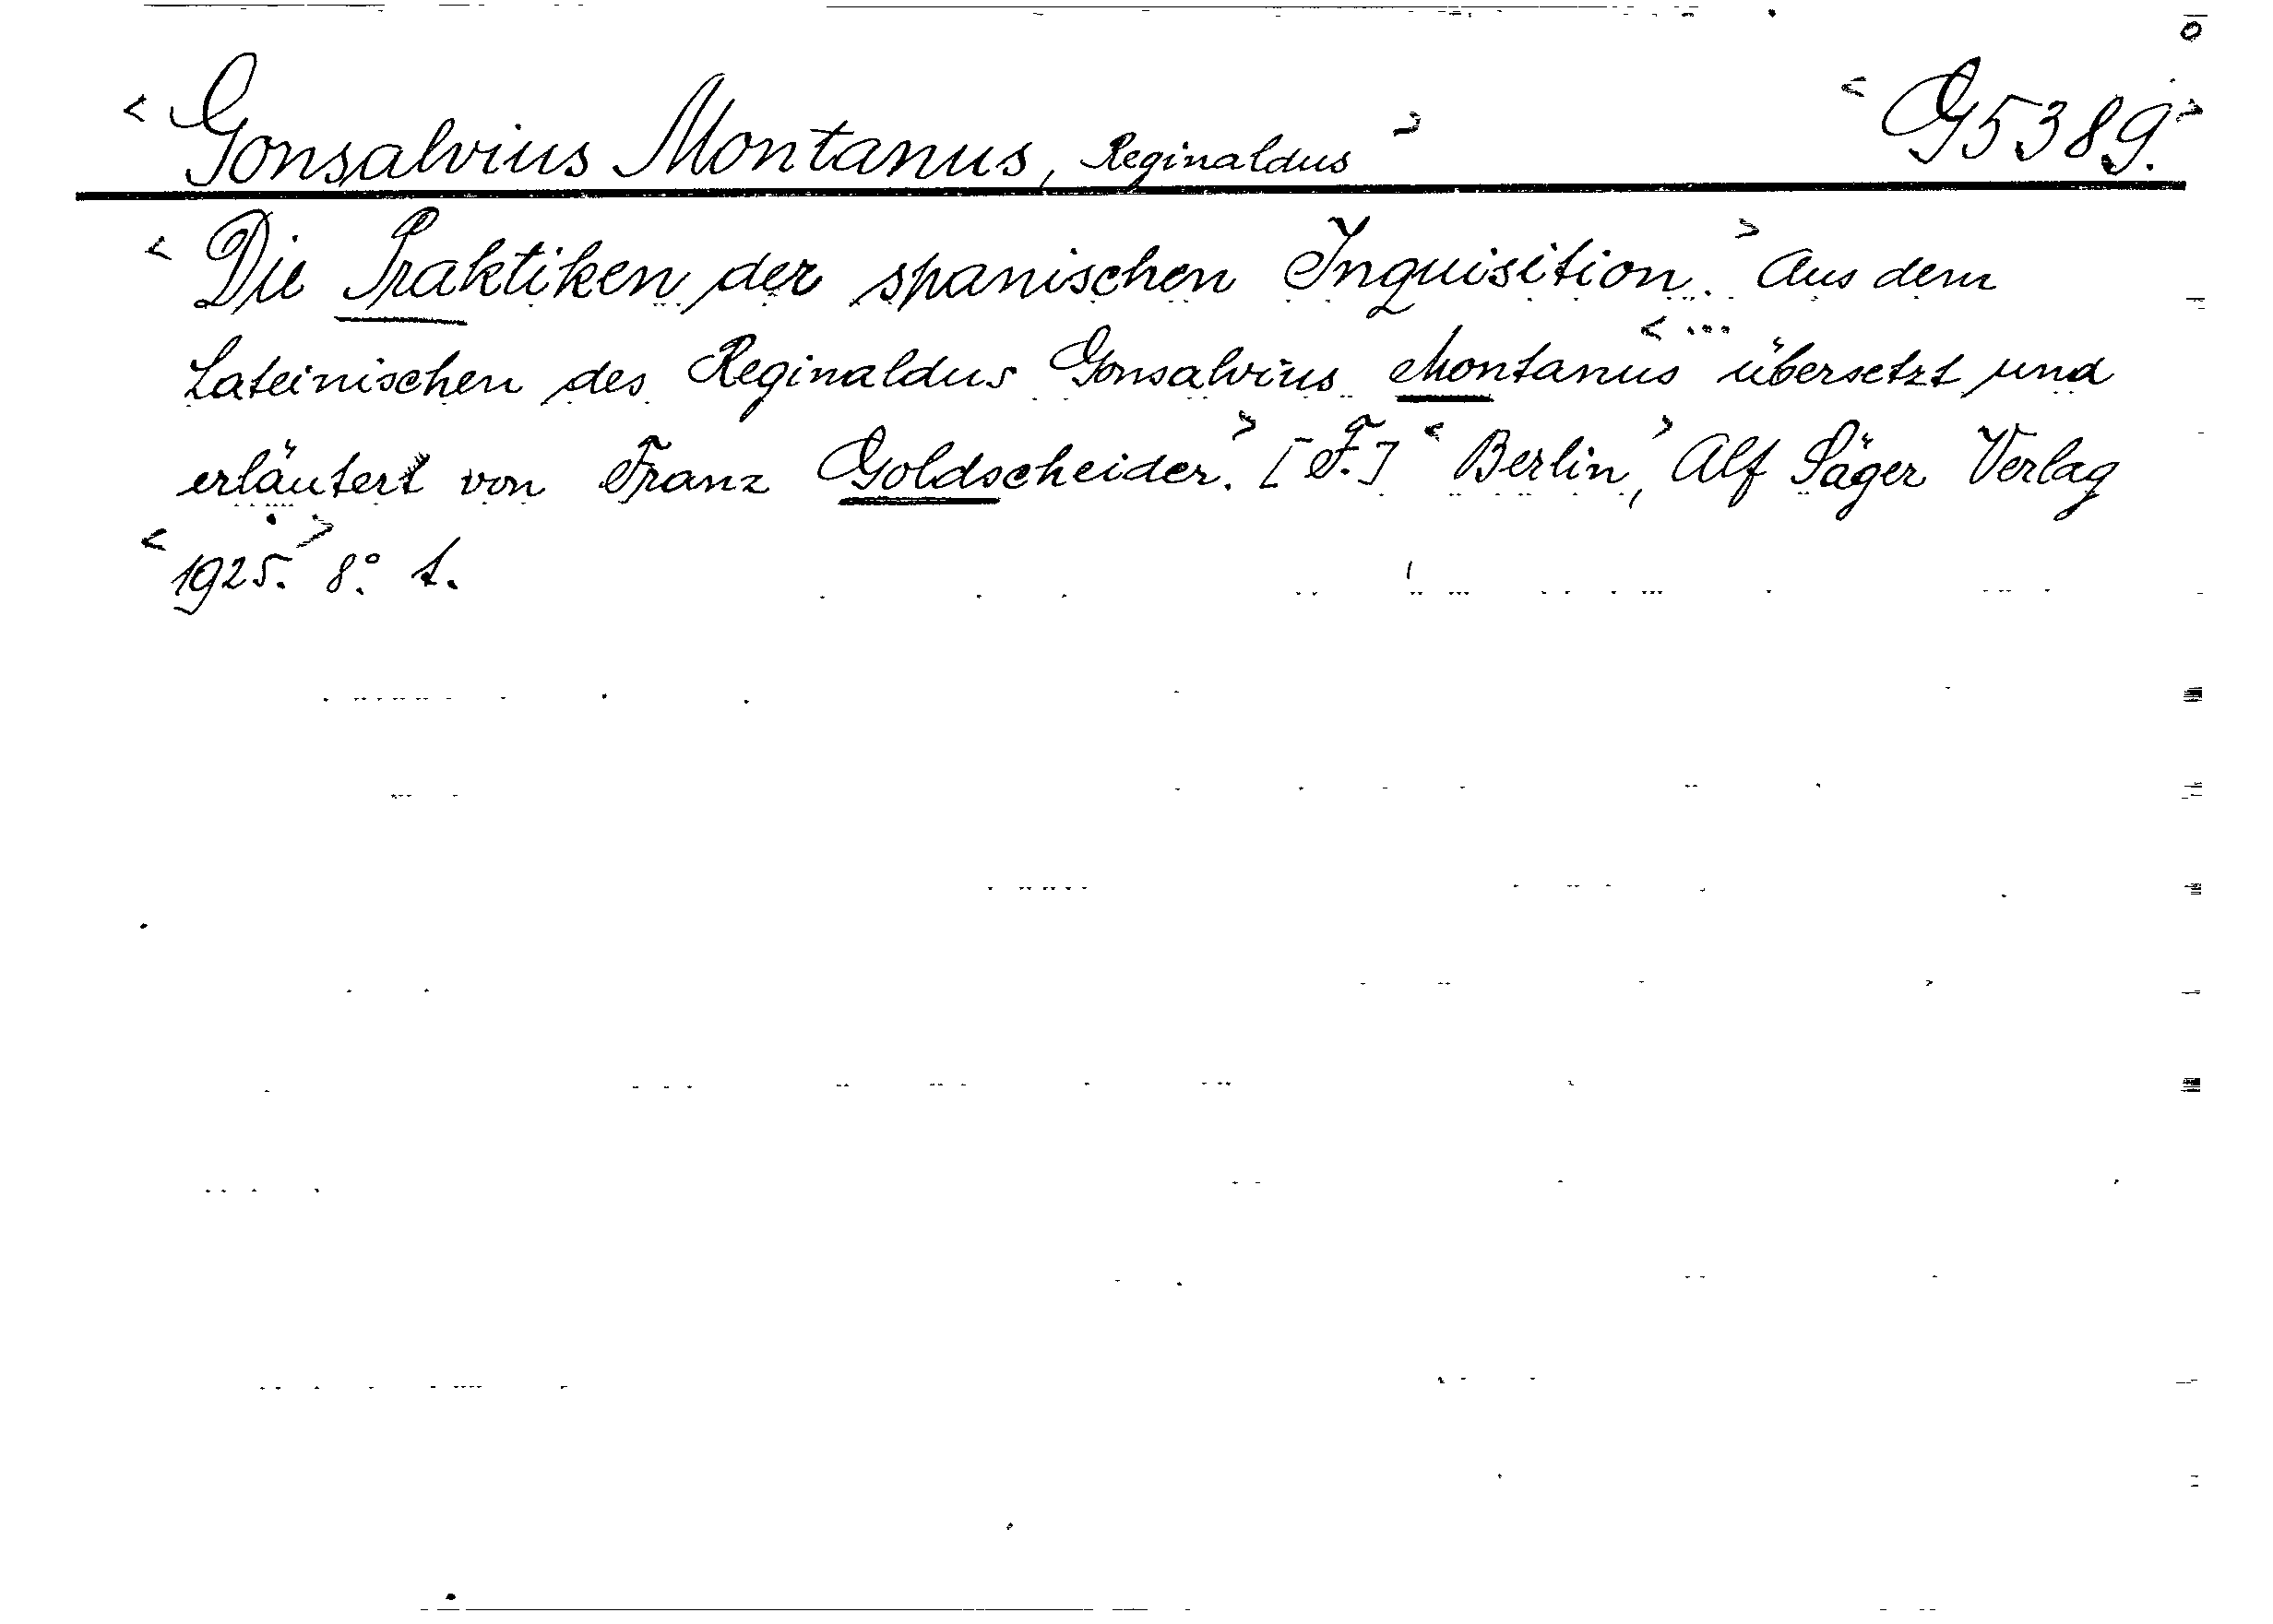 < Gonsalvius Montanus, Reginaldus > < G 5389. >
< Die Praktiken der spanischen Inquisition. > Aus dem
Lateinischen des Reginaldus Gonsalvius Montanus < ... übersetzt und
erläutert von Franz Goldscheider. > [F.] < Berlin, > Alf Säger Verlag
< 1925. > 8°. 1.